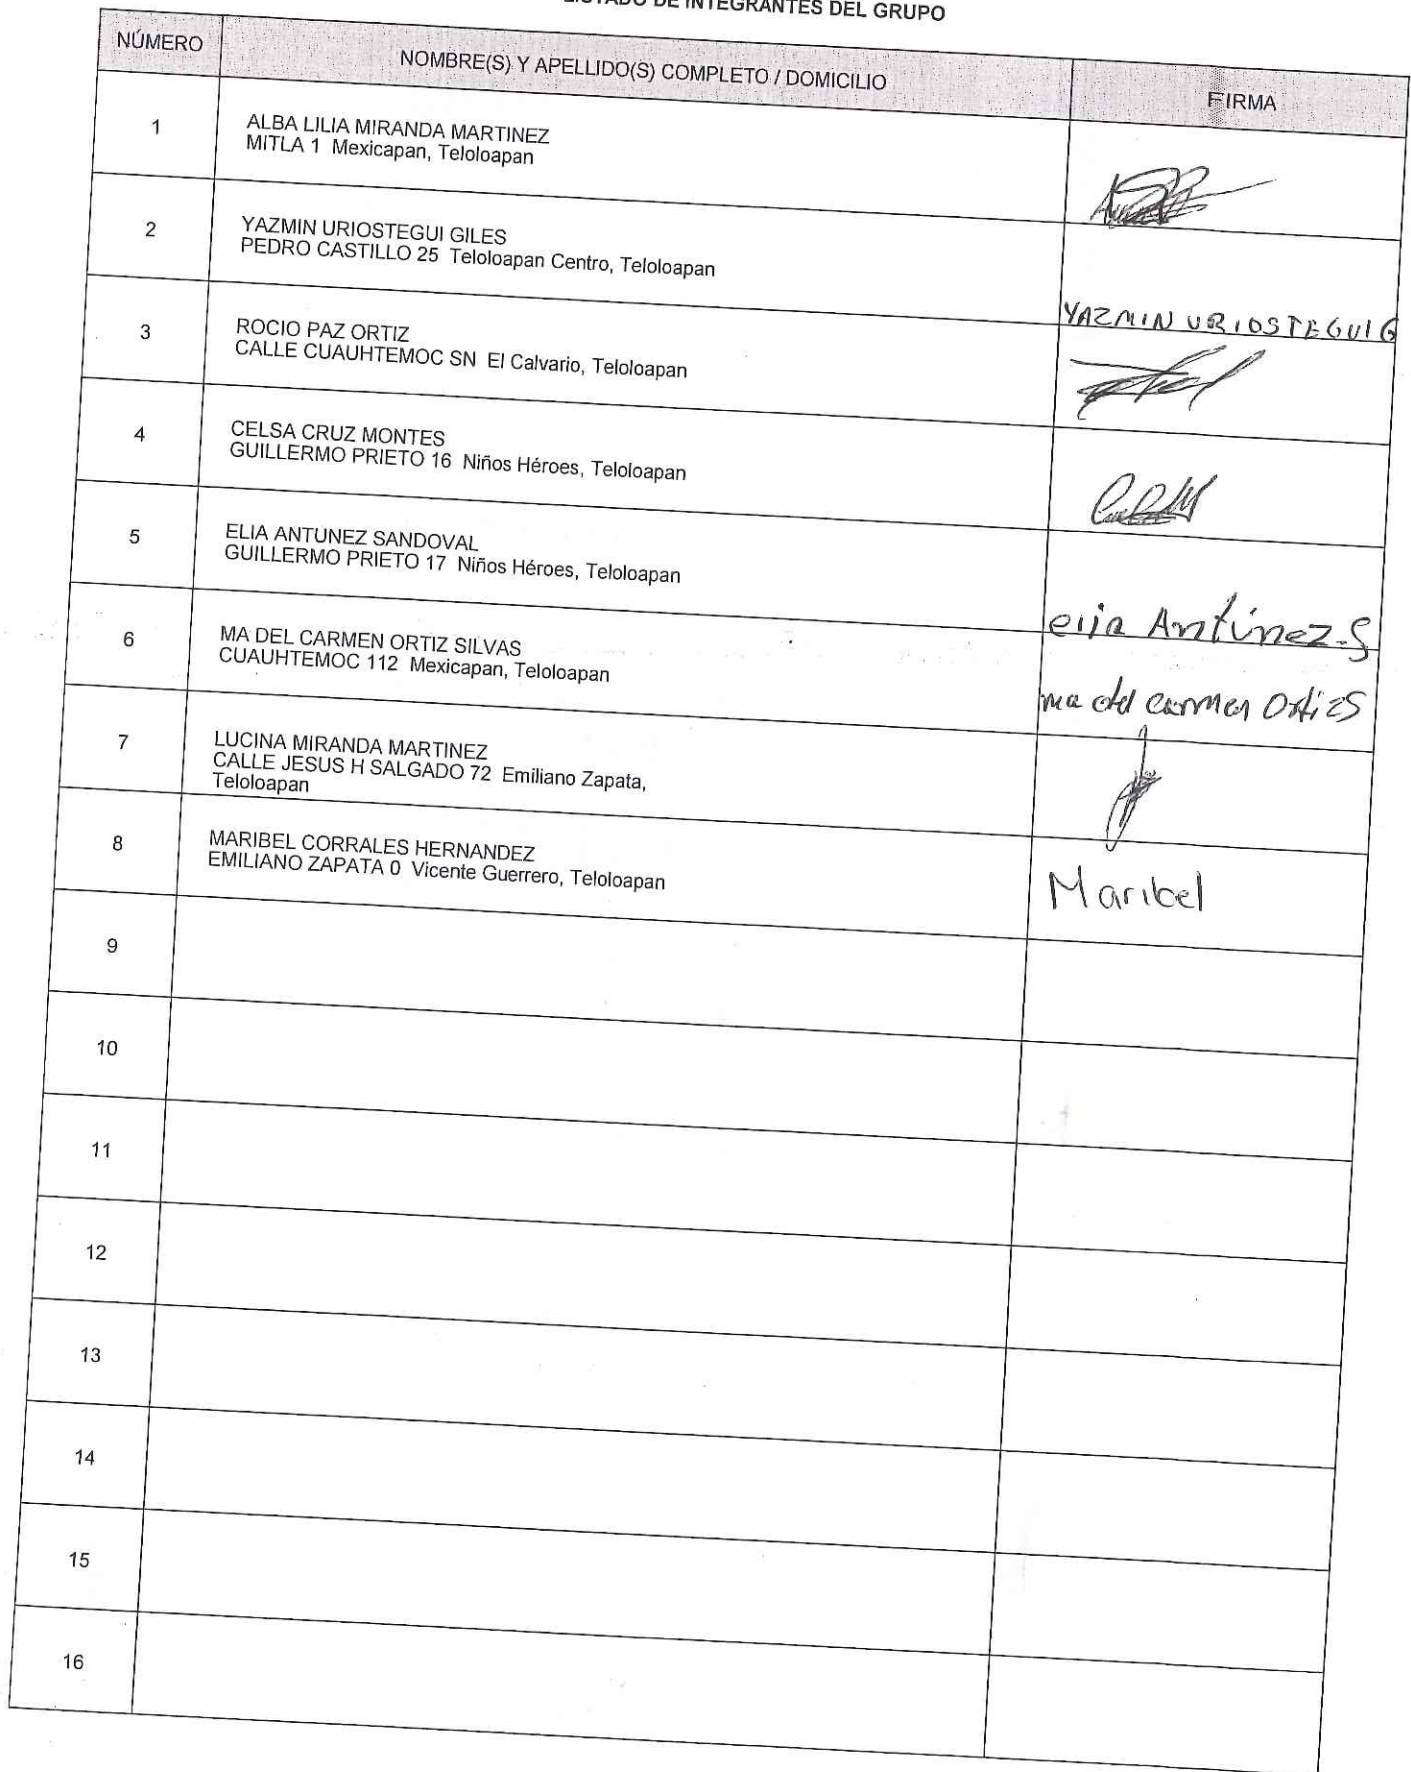 LISTADO DE INTEGRANTES DEL GRUPO
NÚMERO NOMBRE(S) Y APELLIDO(S) COMPLETO / DOMICILIO FIRMA
1 ALBA LILIA MIRANDA MARTINEZ
MITLA 1 Mexicapan, Teloloapan
2 YAZMIN URIOSTEGUI GILES
PEDRO CASTILLO 25 Teloloapan Centro, Teloloapan
YAZMIN URIOSTEGUI G
3 ROCIO PAZ ORTIZ
CALLE CUAUHTEMOC SN El Calvario, Teloloapan
4 CELSA CRUZ MONTES
GUILLERMO PRIETO 16 Niños Héroes, Teloloapan
5 ELIA ANTUNEZ SANDOVAL
GUILLERMO PRIETO 17 Niños Héroes, Teloloapan
elia Antúnez.S
6 MA DEL CARMEN ORTIZ SILVAS
CUAUHTEMOC 112 Mexicapan, Teloloapan
ma del carmen Ortiz S
7 LUCINA MIRANDA MARTINEZ
CALLE JESUS H SALGADO 72 Emiliano Zapata,
Teloloapan
8 MARIBEL CORRALES HERNANDEZ
EMILIANO ZAPATA 0 Vicente Guerrero, Teloloapan
Maribel
9
10
11
12
13
14
15
16